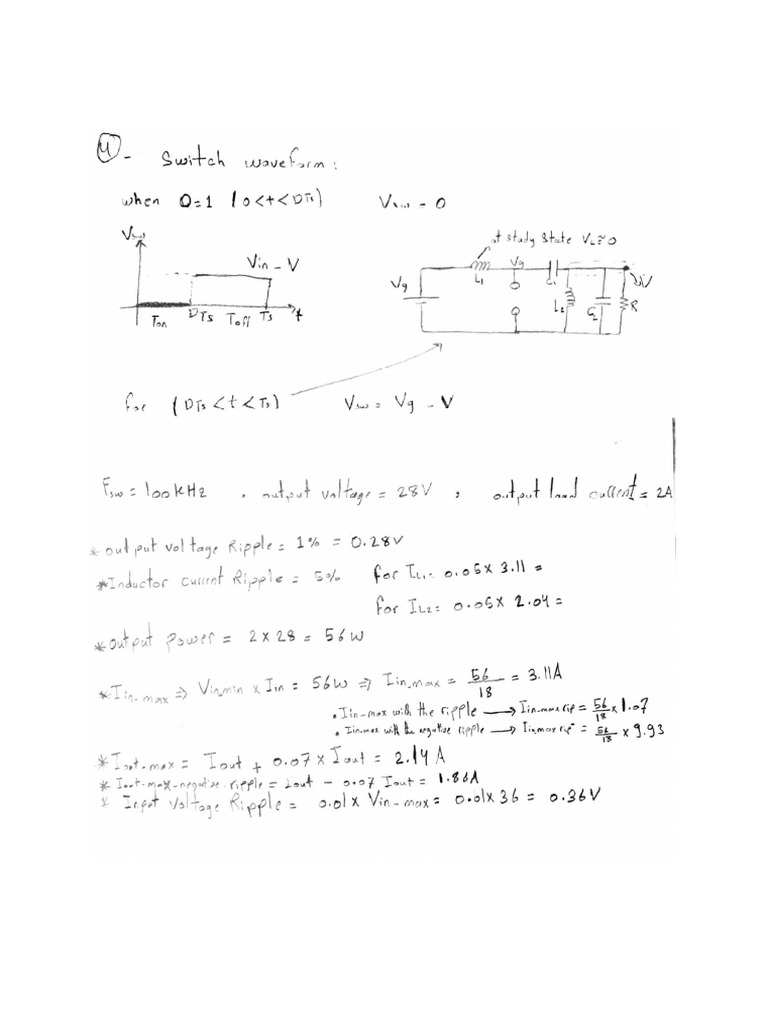 4 - Switch waveform:
when D=1 (0<t<DTs) Vsw = 0
Vsw
Vin - V
Ton DTs Toff Ts t
at study state VL≈0
Vg L1 Vg C1 L2 C2 R V
for (DTs < t < Ts) Vsw = Vg - V
Fsw = 100kHz . output voltage = 28V , output load current = 2A
* output voltage Ripple = 1% = 0.28V
* Inductor current Ripple = 5% for IL1 = 0.05 x 3.11 =
for IL2 = 0.05 x 2.04 =
* output power = 2 x 28 = 56W
* Iin-max => Vin.min x Iin = 56W => Iin.max = 56/18 = 3.11A
. Iin-max with the ripple → Iin-max rip = 56/18 x 1.07
. Iin.max with the negative ripple → Iin.max rip- = 56/18 x 9.93
* Iout-max = Iout + 0.07 x Iout = 2.14 A
* Iout-max-negative ripple = Iout - 0.07 Iout = 1.86A
* Input Voltage Ripple = 0.01 x Vin-max = 0.01 x 36 = 0.36V